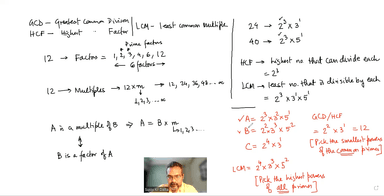 GCD - Greatest Common Division
HCF - Highest " Factor
LCM - Least Common Multiple
Prime factors
12 → Factors = 1, 2, 3, 4, 6, 12
← 6 factors →
12 → Multiples → 12 x m → 12, 24, 36, 48 ... ∞
1, 2, 3, ... ∞
A is a multiple of B ⇒ A = B x m
↳ 1, 2, 3, ... ∞
B is a factor of A
24 → 2³ x 3¹
40 → 2³ x 5¹
HCF = highest no. that can divide each
= 2³
LCM → least no. that is divisible by each
= 2³ x 3¹ x 5¹
A = 2² x 3³ x 5¹
B = 2² x 3² x 5²
C = 2⁴ x 3¹
GCD/HCF
= 2² x 3¹ = 12
[Pick the smallest powers of the common primes]
LCM = 2⁴ x 3³ x 5²
[Pick the highest powers of all primes]